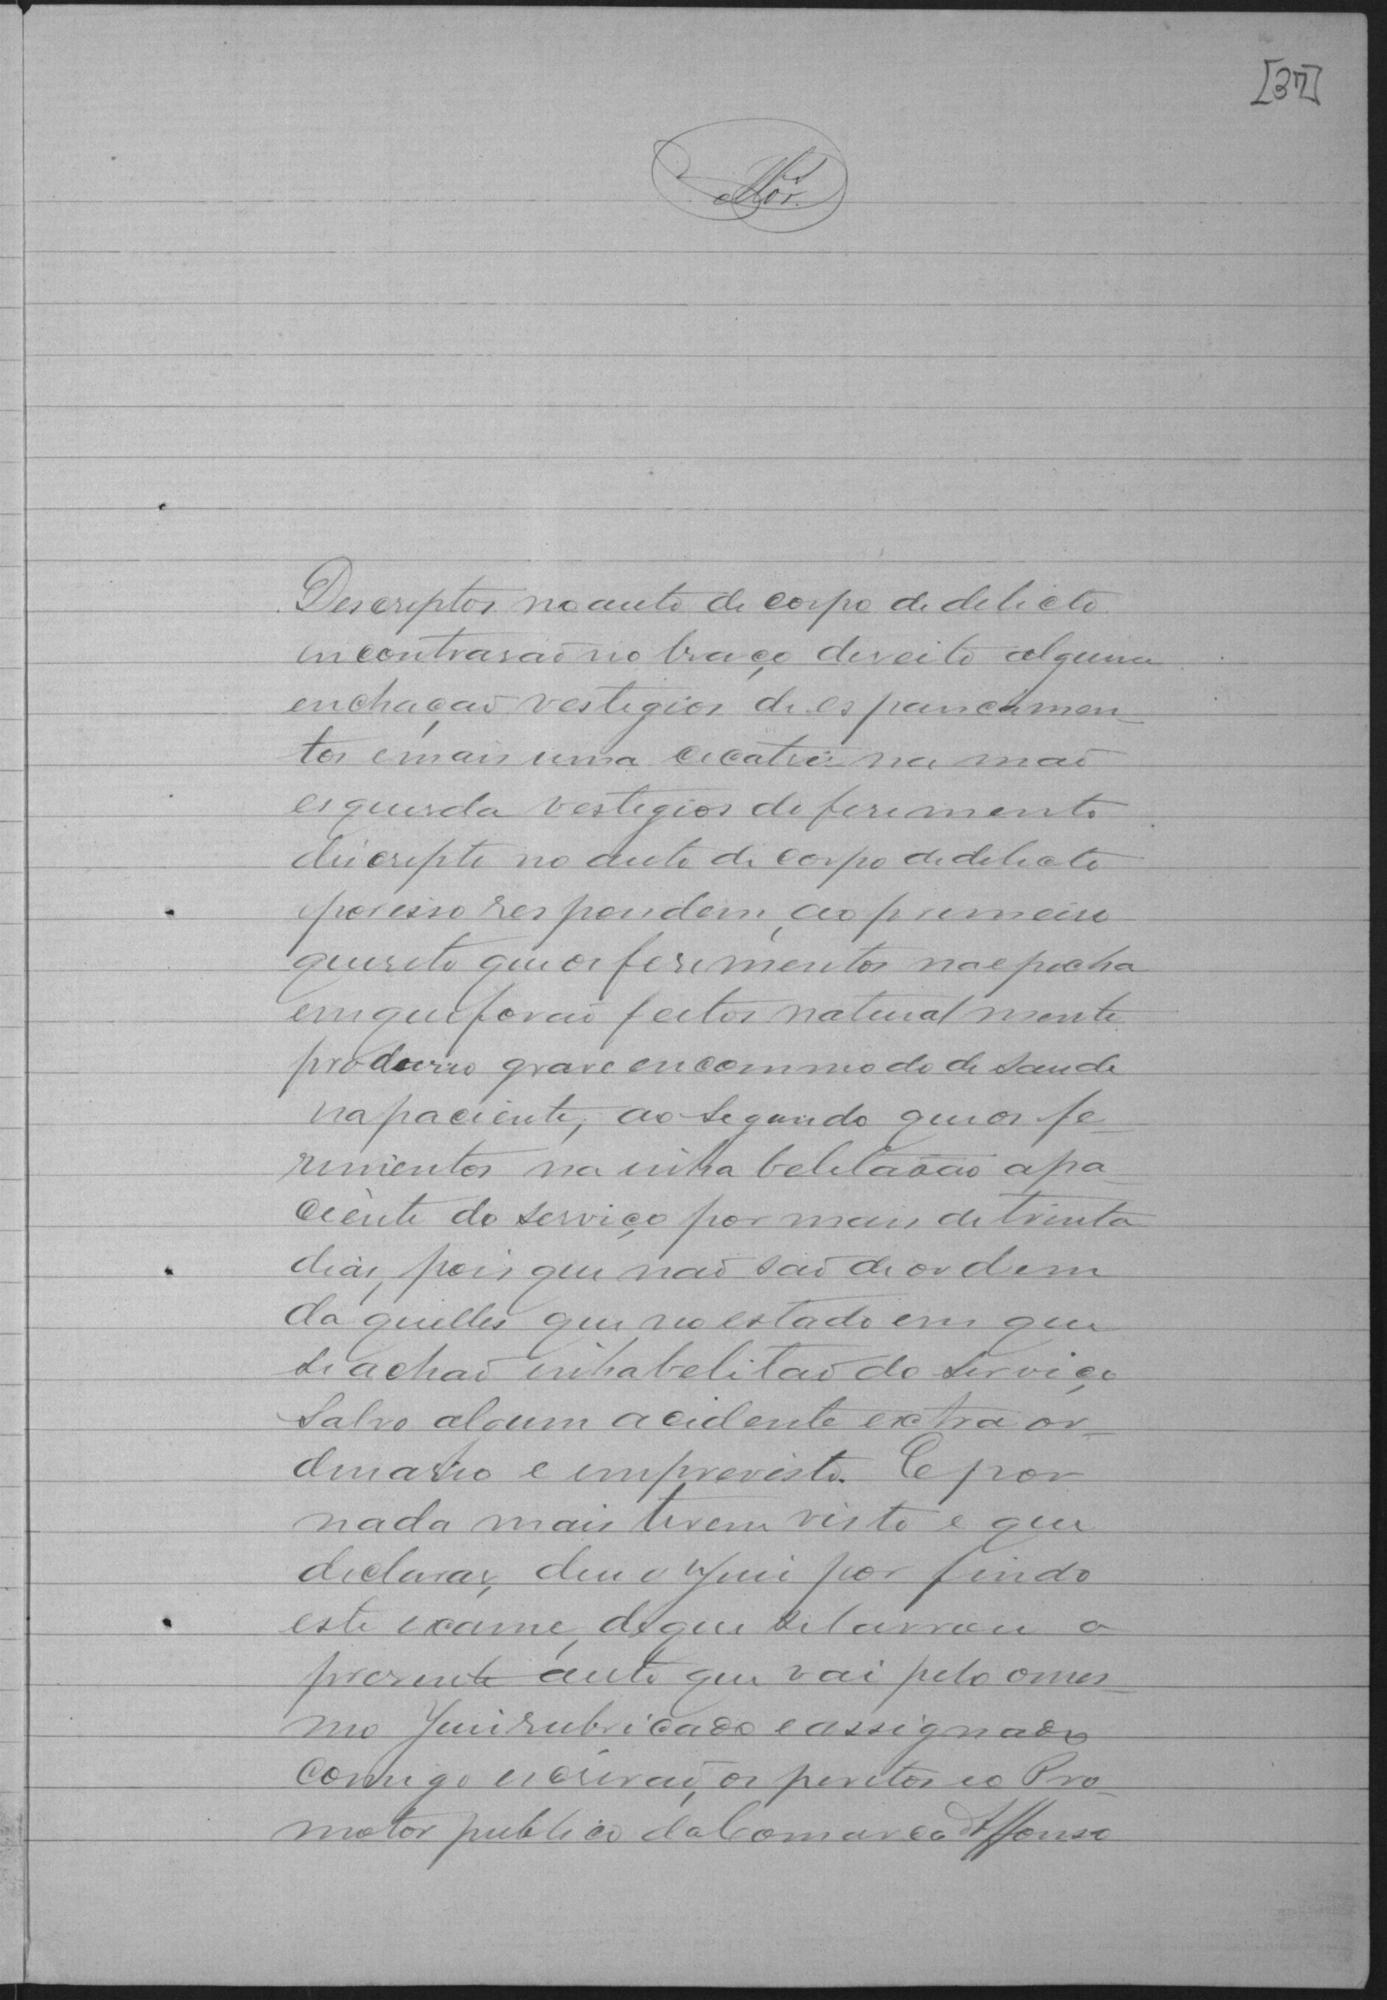 [37]
Descriptos no auto de corpo de delicto
encontrarão no braço direito alguma
enchação vestigios de espancamen_
tos e mais uma cicatriz na mão
esquerda vestigios de ferimento
discripto no auto de corpo de delicto
por isso respondem, ao primeiro
quesito que os ferimentos na epocha
em que forão feitos natural mente
produzio grave encommodo de saude
na paciente, ao segundo que os fe_
rimentos na inhabelitação a pa_
ciente do serviço por mais de trinta
dias, pois que não são de ordem
da quelles que, no estado em que
se achão inhabelitão do serviço
salvo algum acidente extra or_
dinario e imprevisto. E por
nada mais terem visto e que
declarar, deu o Juiz por findo
este exame, de que se lavrou o
presente auto que vai pelo omes_
mo Juiz rubricado e assignado
comigo escrivão, os peritos e o Pro_
motor publico da Comarca Affonso